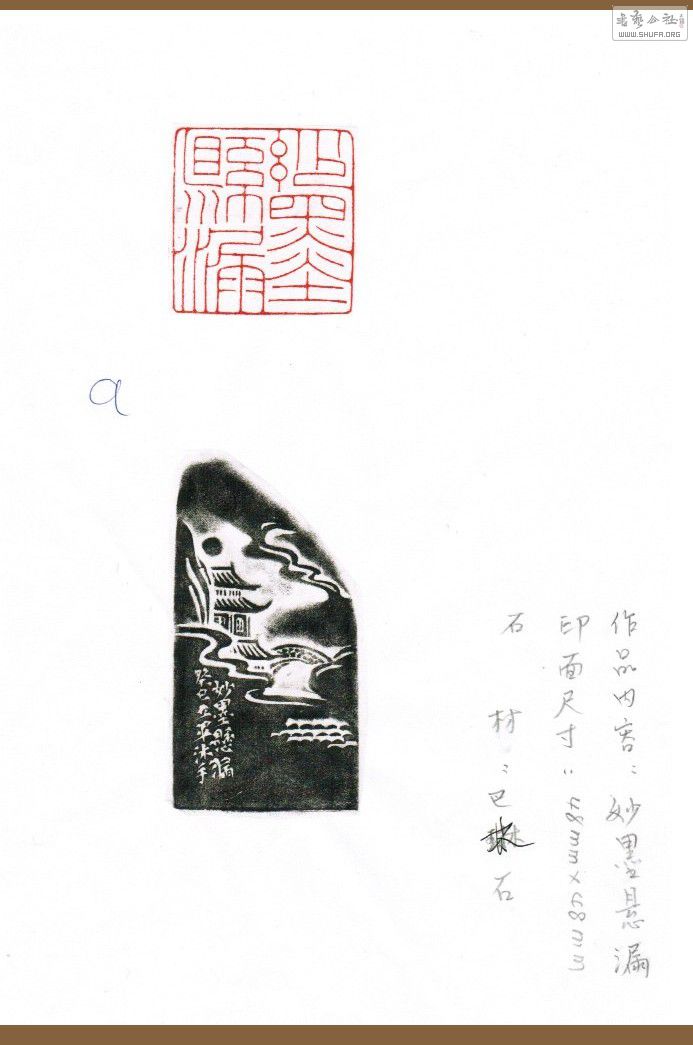 书艺公社
WWW.SHUFA.ORG
妙墨悬漏
a
妙墨悬漏
癸巳
作品内容：妙墨悬漏
印面尺寸：48mm×48mm
石材：巴林石